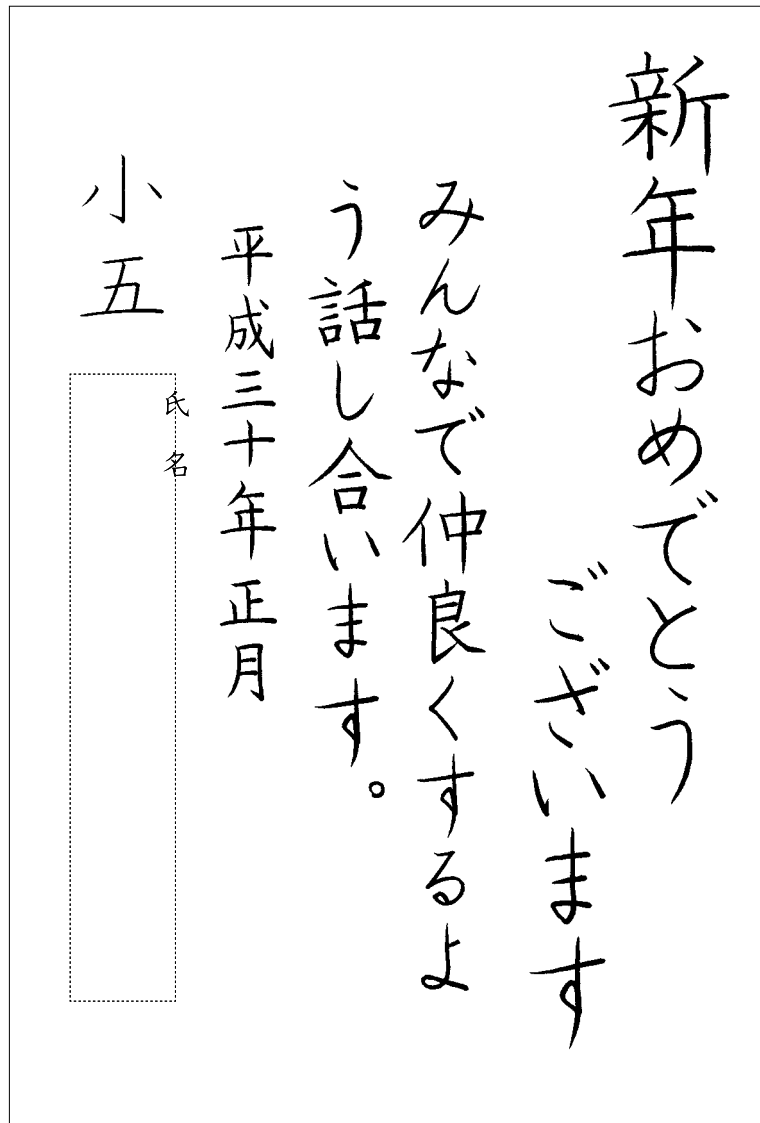 新年おめでとう
ございます
みんなで仲良くするよ
う話し合います。
平成三十年正月
小五
氏名